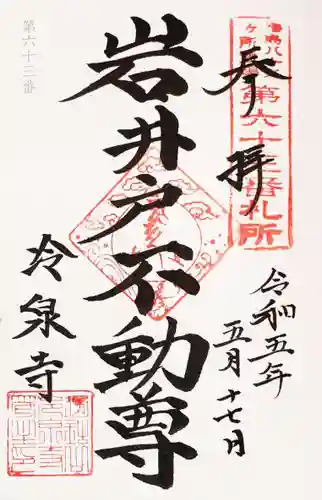 奉拝
第六十三番札所
令和五年
五月十七日
岩井戸不動尊
冷泉寺
第六十三番